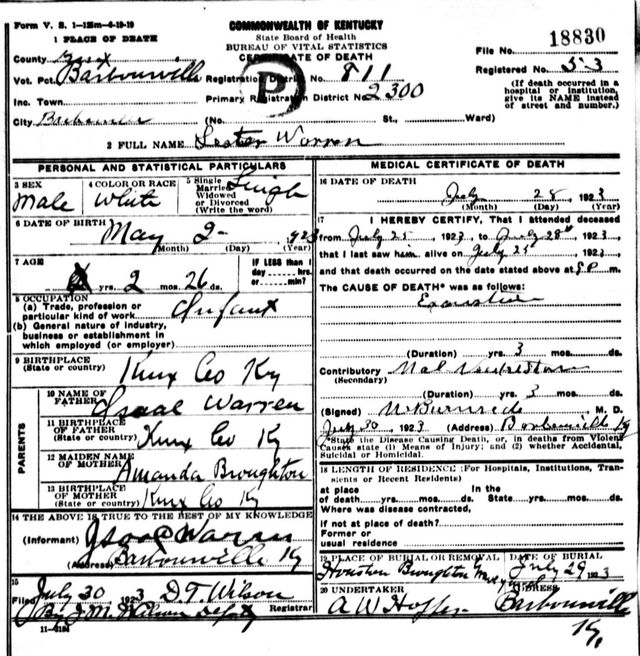 Form V. S. 1-125m-6-19-19
COMMONWEALTH OF KENTUCKY
State Board of Health
BUREAU OF VITAL STATISTICS
CERTIFICATE OF DEATH
File No. 18830
Registered No. 53
(If death occurred in a hospital or institution, give its NAME instead of street and number.)
1 PLACE OF DEATH
County Knox
Vot. Pct. Barbourville Registration District No. 811
Inc. Town Primary Registration District No. 2300
P
City (No. St., Ward)
2 FULL NAME Lester Warren
PERSONAL AND STATISTICAL PARTICULARS
3 SEX
Male
4 COLOR OR RACE
White
5 Single Married Widowed or Divorced (Write the word)
Single
6 DATE OF BIRTH
May 2 1923
(Month) (Day) (Year)
7 AGE
yrs. 2 mos. 26 ds.
IF LESS than 1 day hrs. or min.?
8 OCCUPATION
(a) Trade, profession or particular kind of work Infant
(b) General nature of industry, business or establishment in which employed (or employer)
9 BIRTHPLACE
(State or country) Knox Co Ky
PARENTS
10 NAME OF FATHER Isaac Warren
11 BIRTHPLACE OF FATHER
(State or country) Knox Co Ky
12 MAIDEN NAME OF MOTHER Amanda Broughton
13 BIRTHPLACE OF MOTHER
(State or country) Knox Co Ky
14 THE ABOVE IS TRUE TO THE BEST OF MY KNOWLEDGE
(Informant) Warren
(Address) Barbourville Ky
15
Filed July 30 1923 D.T. Wilson
By J.M. Wilson Deputy Registrar
MEDICAL CERTIFICATE OF DEATH
16 DATE OF DEATH
July 28, 1923
(Month) (Day) (Year)
17 I HEREBY CERTIFY, That I attended deceased
from July 25, 1923, to July 28th, 1923
that I last saw him alive on July 25, 1923
and that death occurred on the date stated above at 8 P m.
The CAUSE OF DEATH* was as follows:
(Duration) yrs. 3 mos. ds.
Contributory
(Secondary)
(Duration) yrs. 3 mos. ds.
(Signed) M. D.
July 30, 1923 (Address) Barbourville Ky
*State the Disease Causing Death, or, in deaths from Violent Causes state (1) Means of Injury; and (2) whether Accidental, Suicidal or Homicidal.
18 LENGTH OF RESIDENCE (For Hospitals, Institutions, Transients or Recent Residents)
at place of death yrs. mos. ds. In the State yrs. mos. ds.
Where was disease contracted,
if not at place of death?
Former or usual residence
19 PLACE OF BURIAL OR REMOVAL
Houston Broughton
DATE OF BURIAL
July 29 1923
20 UNDERTAKER
A W Hopper
ADDRESS
Barbourville
Ky.
11-3184